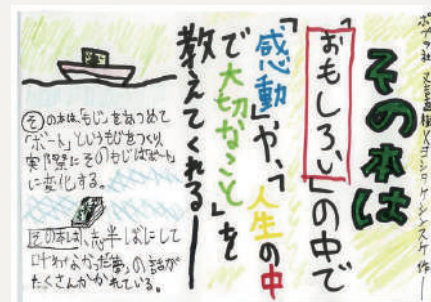 ポプラ社 又吉直樹×ヨシタケシンスケ 作
その本は
「おもしろい」の中で
「感動」や、「人生の中
で大切なこと」を
教えてくれる―
その本は、「もじ」をあつめて
「ボート」というもじをつくり、
実際にそのもじはボート
に変化する。
その本は、志半ばにして
「叶わなかった夢」の話が
たくさんかかれている。